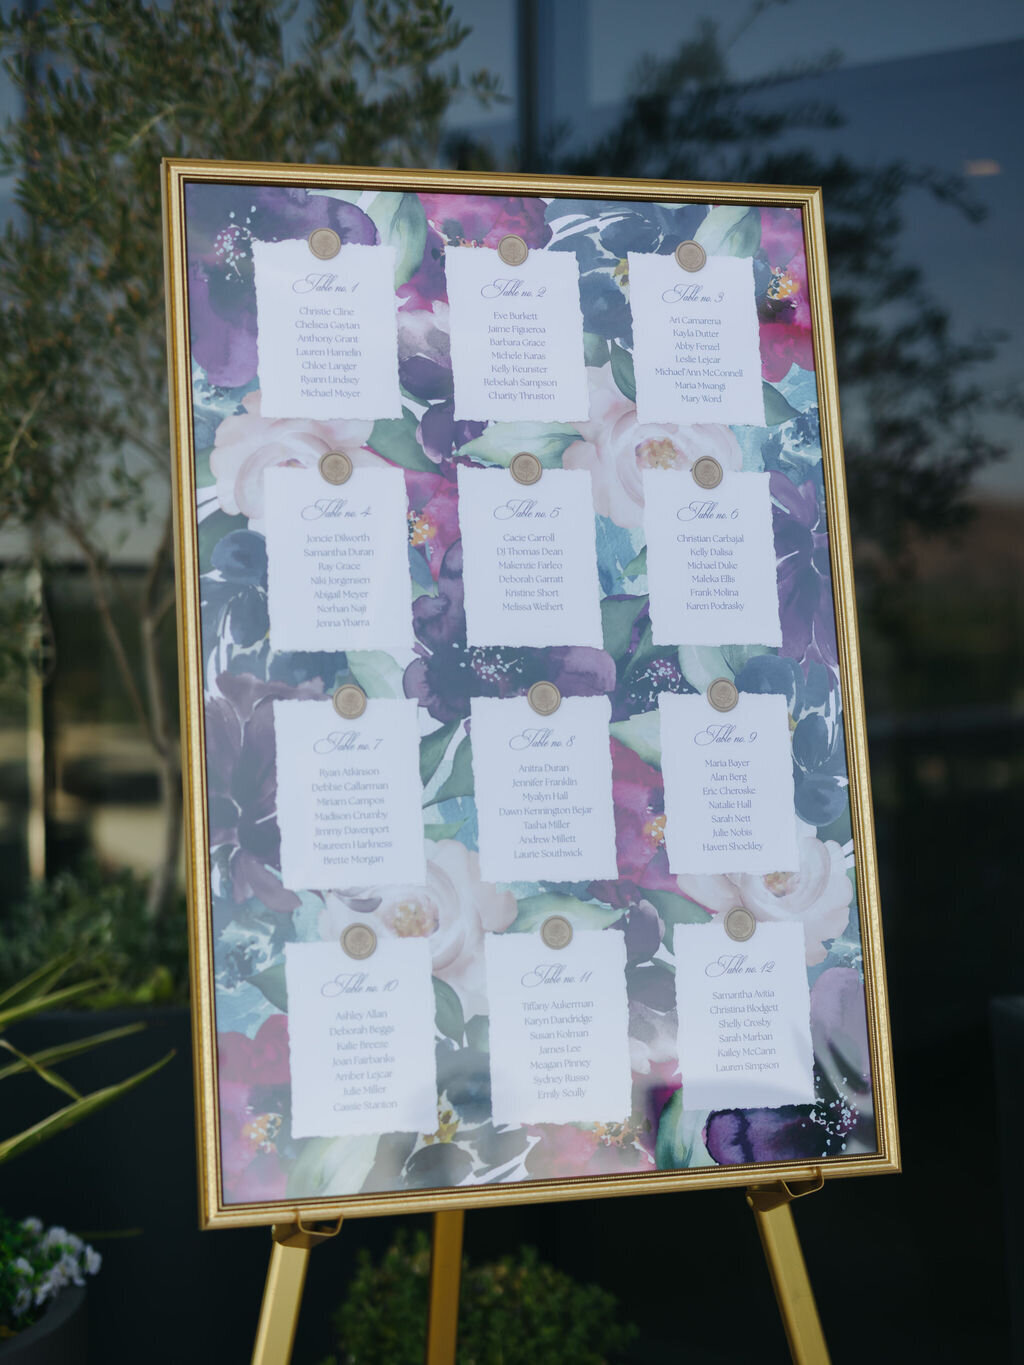 Table no. 1
Christie Cline
Chelsea Gaytan
Anthony Grant
Lauren Hamelin
Chloe Langer
Ryann Lindsey
Michael Moyer
Table no. 2
Eve Burkett
Jaime Figueroa
Barbara Grace
Michele Karas
Kelly Keunster
Rebekah Sampson
Charity Thruston
Table no. 3
Ari Camarena
Kayla Dutter
Abby Fenzel
Leslie Lejcar
Michael'Ann McConnell
Maria Mwangi
Mary Word
Table no. 4
Joncie Dilworth
Samantha Duran
Ray Grace
Niki Jorgensen
Abigail Meyer
Norhan Naji
Jenna Ybarra
Table no. 5
Cacie Carroll
DJ Thomas Dean
Makenzie Farleo
Deborah Garratt
Kristine Short
Melissa Weihert
Table no. 6
Christian Carbajal
Kelly Dalisa
Michael Duke
Maleka Ellis
Frank Molina
Karen Podrasky
Table no. 7
Ryan Atkinson
Debbie Callarman
Miriam Campos
Madison Crumby
Jimmy Davenport
Maureen Harkness
Brette Morgan
Table no. 8
Anitra Duran
Jennifer Franklin
Myalyn Hall
Dawn Kennington Bejar
Tasha Miller
Andrew Millett
Laurie Southwick
Table no. 9
Maria Bayer
Alan Berg
Eric Cheroske
Natalie Hall
Sarah Nett
Julie Nobis
Haven Shockley
Table no. 10
Ashley Allan
Deborah Beggs
Katie Breeze
Joan Fairbanks
Amber Lejcar
Julie Miller
Cassie Stanton
Table no. 11
Tiffany Aukerman
Karyn Dandridge
Susan Kolman
James Lee
Meagan Pinney
Sydney Russo
Emily Scully
Table no. 12
Samantha Avitia
Christina Blodgett
Shelly Crosby
Sarah Marban
Kailey McCann
Lauren Simpson